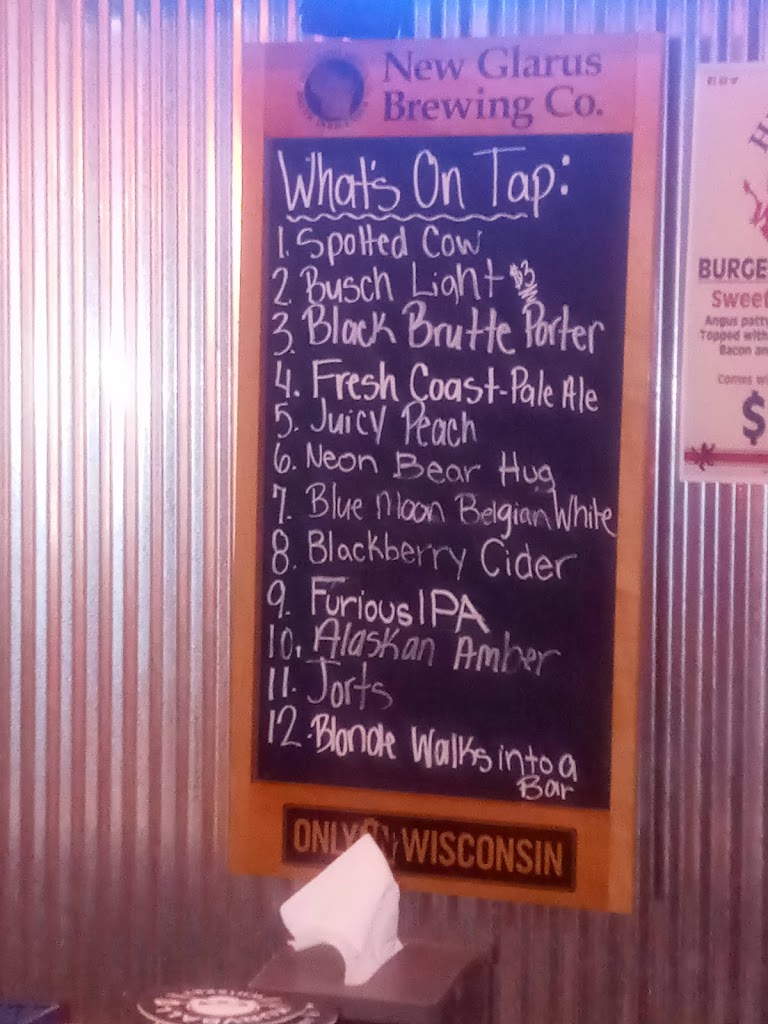 New Glarus
Brewing Co.
What's On Tap:
1. Spotted Cow
2. Busch Light $3
3. Black Brutte Porter
4. Fresh Coast-Pale Ale
5. Juicy Peach
6. Neon Bear Hug
7. Blue Moon Belgian White
8. Blackberry Cider
9. Furious IPA
10. Alaskan Amber
11. Jorts
12. Blonde Walks into a
Bar
ONLY WISCONSIN
BURGE
Sweet
Angus patty
Topped with
Bacon an
Comes wi
$